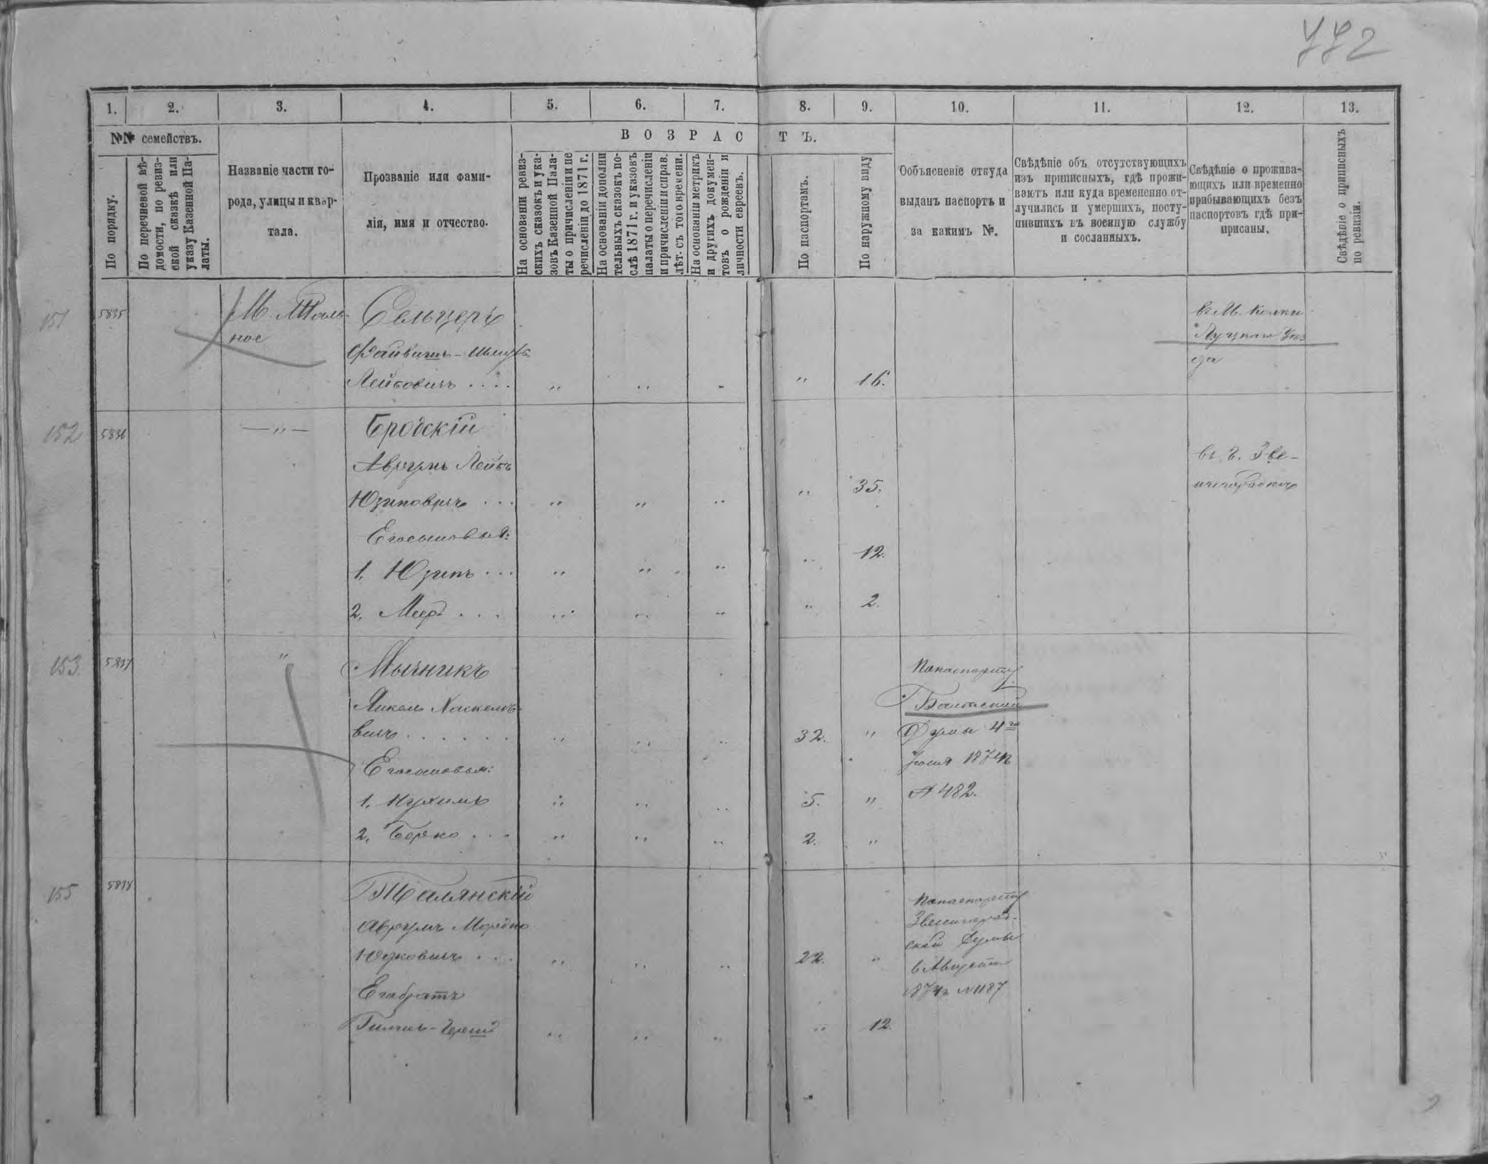 772
1.
2.
3.
4.
5.
6.
7.
8.
9.
10.
11.
12.
13.
№№ семействъ.
По порядку.
По перечневой вѣ-
домости, по ревиз-
ской сказкѣ или
указу Казенной Па-
латы.
Названіе части го-
рода, улицы и квар-
тала.
Прозваніе или фами-
лія, имя и отчество.
ВОЗРАСТЪ.
На основаніи ревиз-
скихъ сказокъ и ука-
зовъ Казенной Пала-
ты о причисленіи и пе
речисленіи до 1871 г.
На основаніи дополни
тельныхъ сказокъ по-
слѣ 1871 г. и указовъ
палаты о перечисленіи
и причисленіи и справ.
лѣт. съ того времени.
На основаніи метрикъ
и другихъ докумен-
товъ о рожденіи и
личности евреевъ.
По паспортамъ.
По наружному виду
Ообъясненіе откуда
выданъ паспортъ и
за какимъ №.
Свѣдѣніе объ отсутствующихъ
изъ приписныхъ, гдѣ прожи-
ваютъ или куда временно от-
лучились и умершихъ, посту-
пившихъ въ военную службу
и сосланныхъ.
Свѣдѣніе о прожива-
ющихъ или временно
прибывающихъ безъ
паспортовъ гдѣ при-
приcаны.
Свѣдѣніе о приписныхъ
по ревизіи.
151 5835 М. Таль-
ное
Сельцеръ
Файвишъ-Шмуль
Лейбовичъ . . . . " " " " 16.
въ М. Колки
Луцкаго Уѣз
да
152 5836 — " — Бродскій
Аврумъ Лейбъ
Юзиповичъ . . . " " " " 35.
въ г. Зве-
нигородкѣ
Его сыновья:
1. Юзипъ . . . " " " " 12.
2. Меер . . . " " " " 2.
153 5837 " Мычникъ
Янкель Хаскелевъ-
вичъ . . . . . . " " " 32. "
По паспорту
Балтской
Думы 4го
Іюля 1874г.
№ 482.
Его сыновья:
1. Нухимъ " " " 5. "
2. Берко . . . " " " 2. "
155 5838 Тальянскій
Аврумъ Мордко
Юдковичъ . . . " " " 22. "
По паспорту
Звенигород-
ской Думы
въ Августѣ
1874г. № 1187
Его братъ
Гилель-Герш " " " " 12.